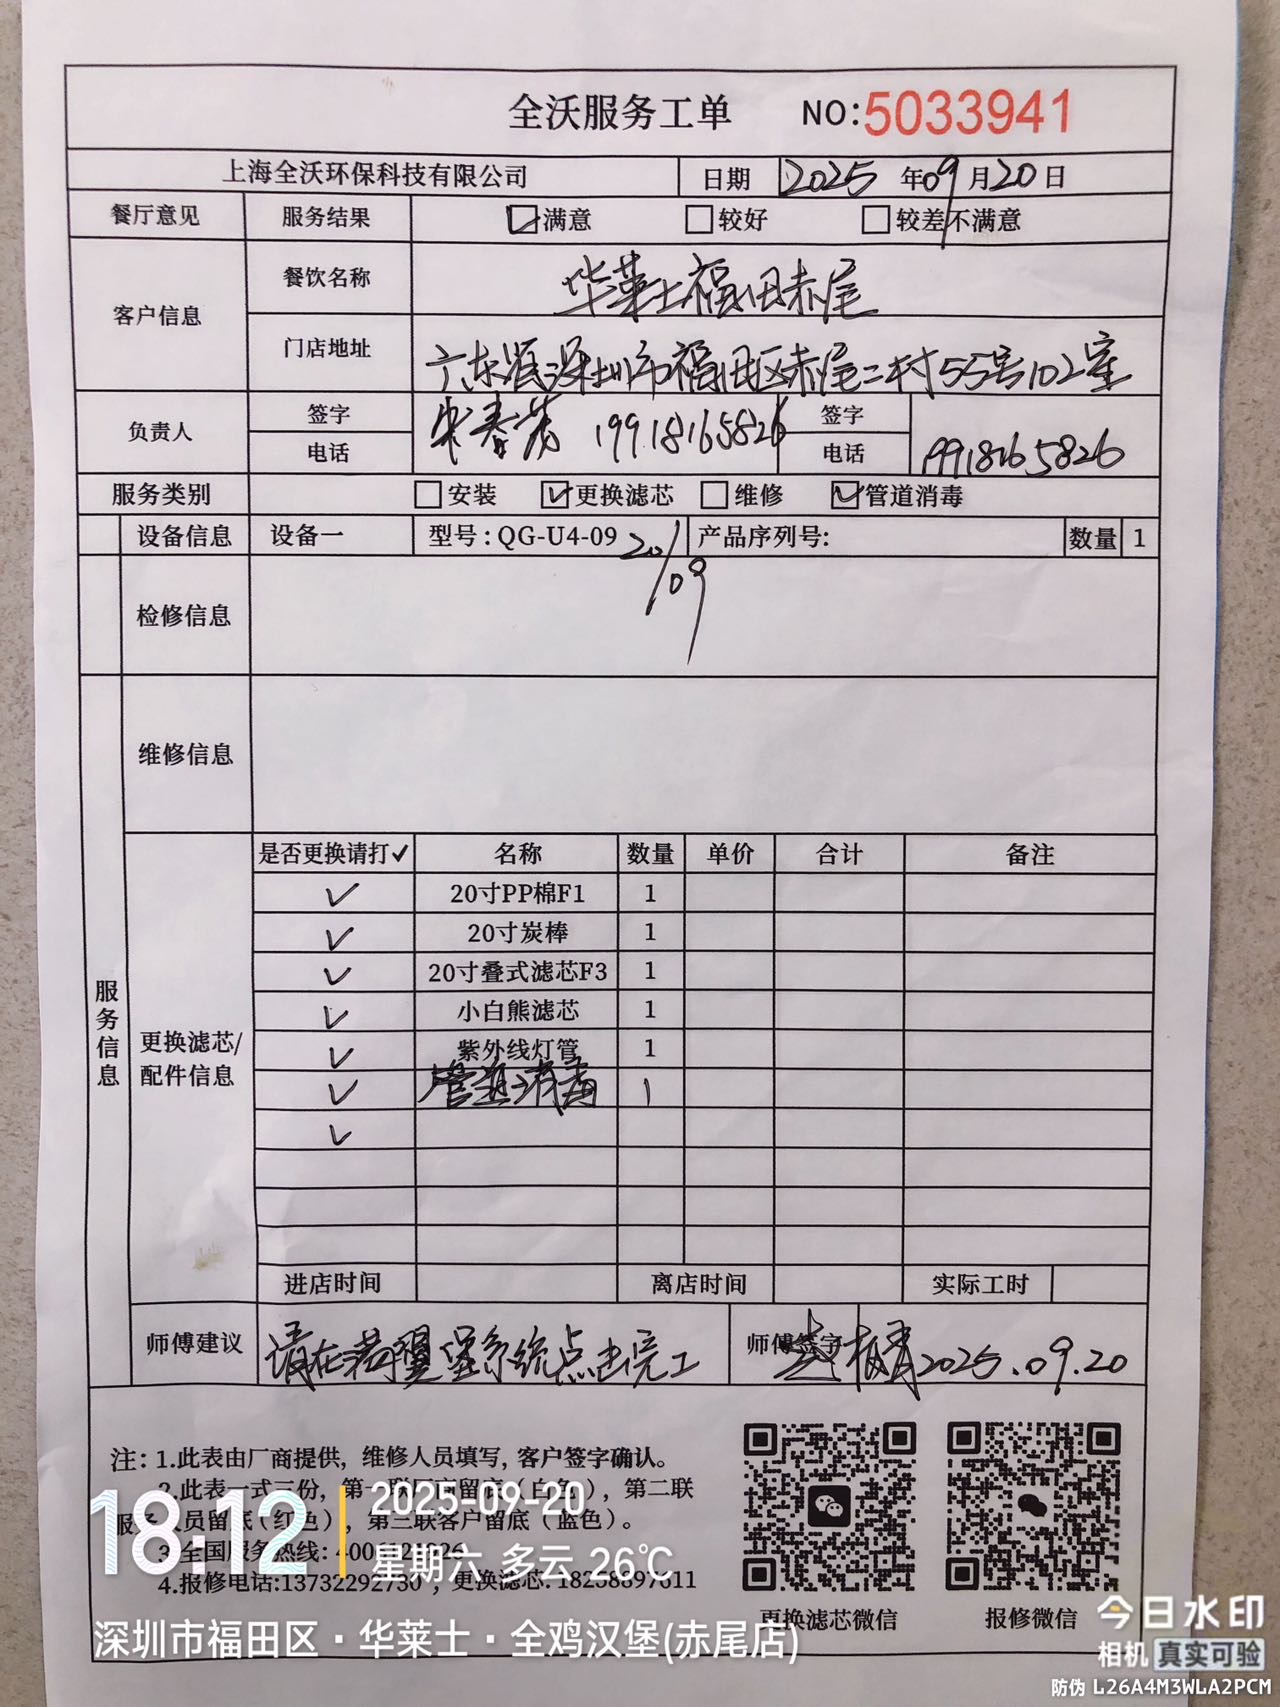 全沃服务工单 NO:5033941
上海全沃环保科技有限公司 日期 2025 年 09 月 20 日
餐厅意见 服务结果 ☑满意 □较好 □较差不满意
客户信息 餐饮名称 华莱士福田赤尾
门店地址 广东省深圳市福田区赤尾二村55号102室
负责人 签字 春 19918165826 签字
电话 电话 19918165826
服务类别 □安装 ☑更换滤芯 □维修 ☑管道消毒
设备信息 设备一 型号:QG-U4-09 产品序列号: 数量 1
20/09
检修信息
维修信息
服务信息
更换滤芯/
配件信息
是否更换请打✓ 名称 数量 单价 合计 备注
✓ 20寸PP棉F1 1
✓ 20寸炭棒 1
✓ 20寸叠式滤芯F3 1
✓ 小白熊滤芯 1
✓ 紫外线灯管 1
✓ 管道消毒 1
✓
进店时间 离店时间 实际工时
师傅建议 请在 系统点击完工 师傅签字 2025.09.20
注: 1.此表由厂商提供，维修人员填写, 客户签字确认。
2.此表一式三份，第一联厂商留底（白色），第二联
服务人员留底（红色），第三联客户留底（蓝色）。
3.全国服务热线:
4.报修电话:13732292730，更换滤芯: 18258897611
更换滤芯微信 报修微信
18:12
2025-09-20
星期六 多云 26℃
深圳市福田区·华莱士·全鸡汉堡(赤尾店)
今日水印
相机 真实可验
防伪 L26A4M3WLA2PCM